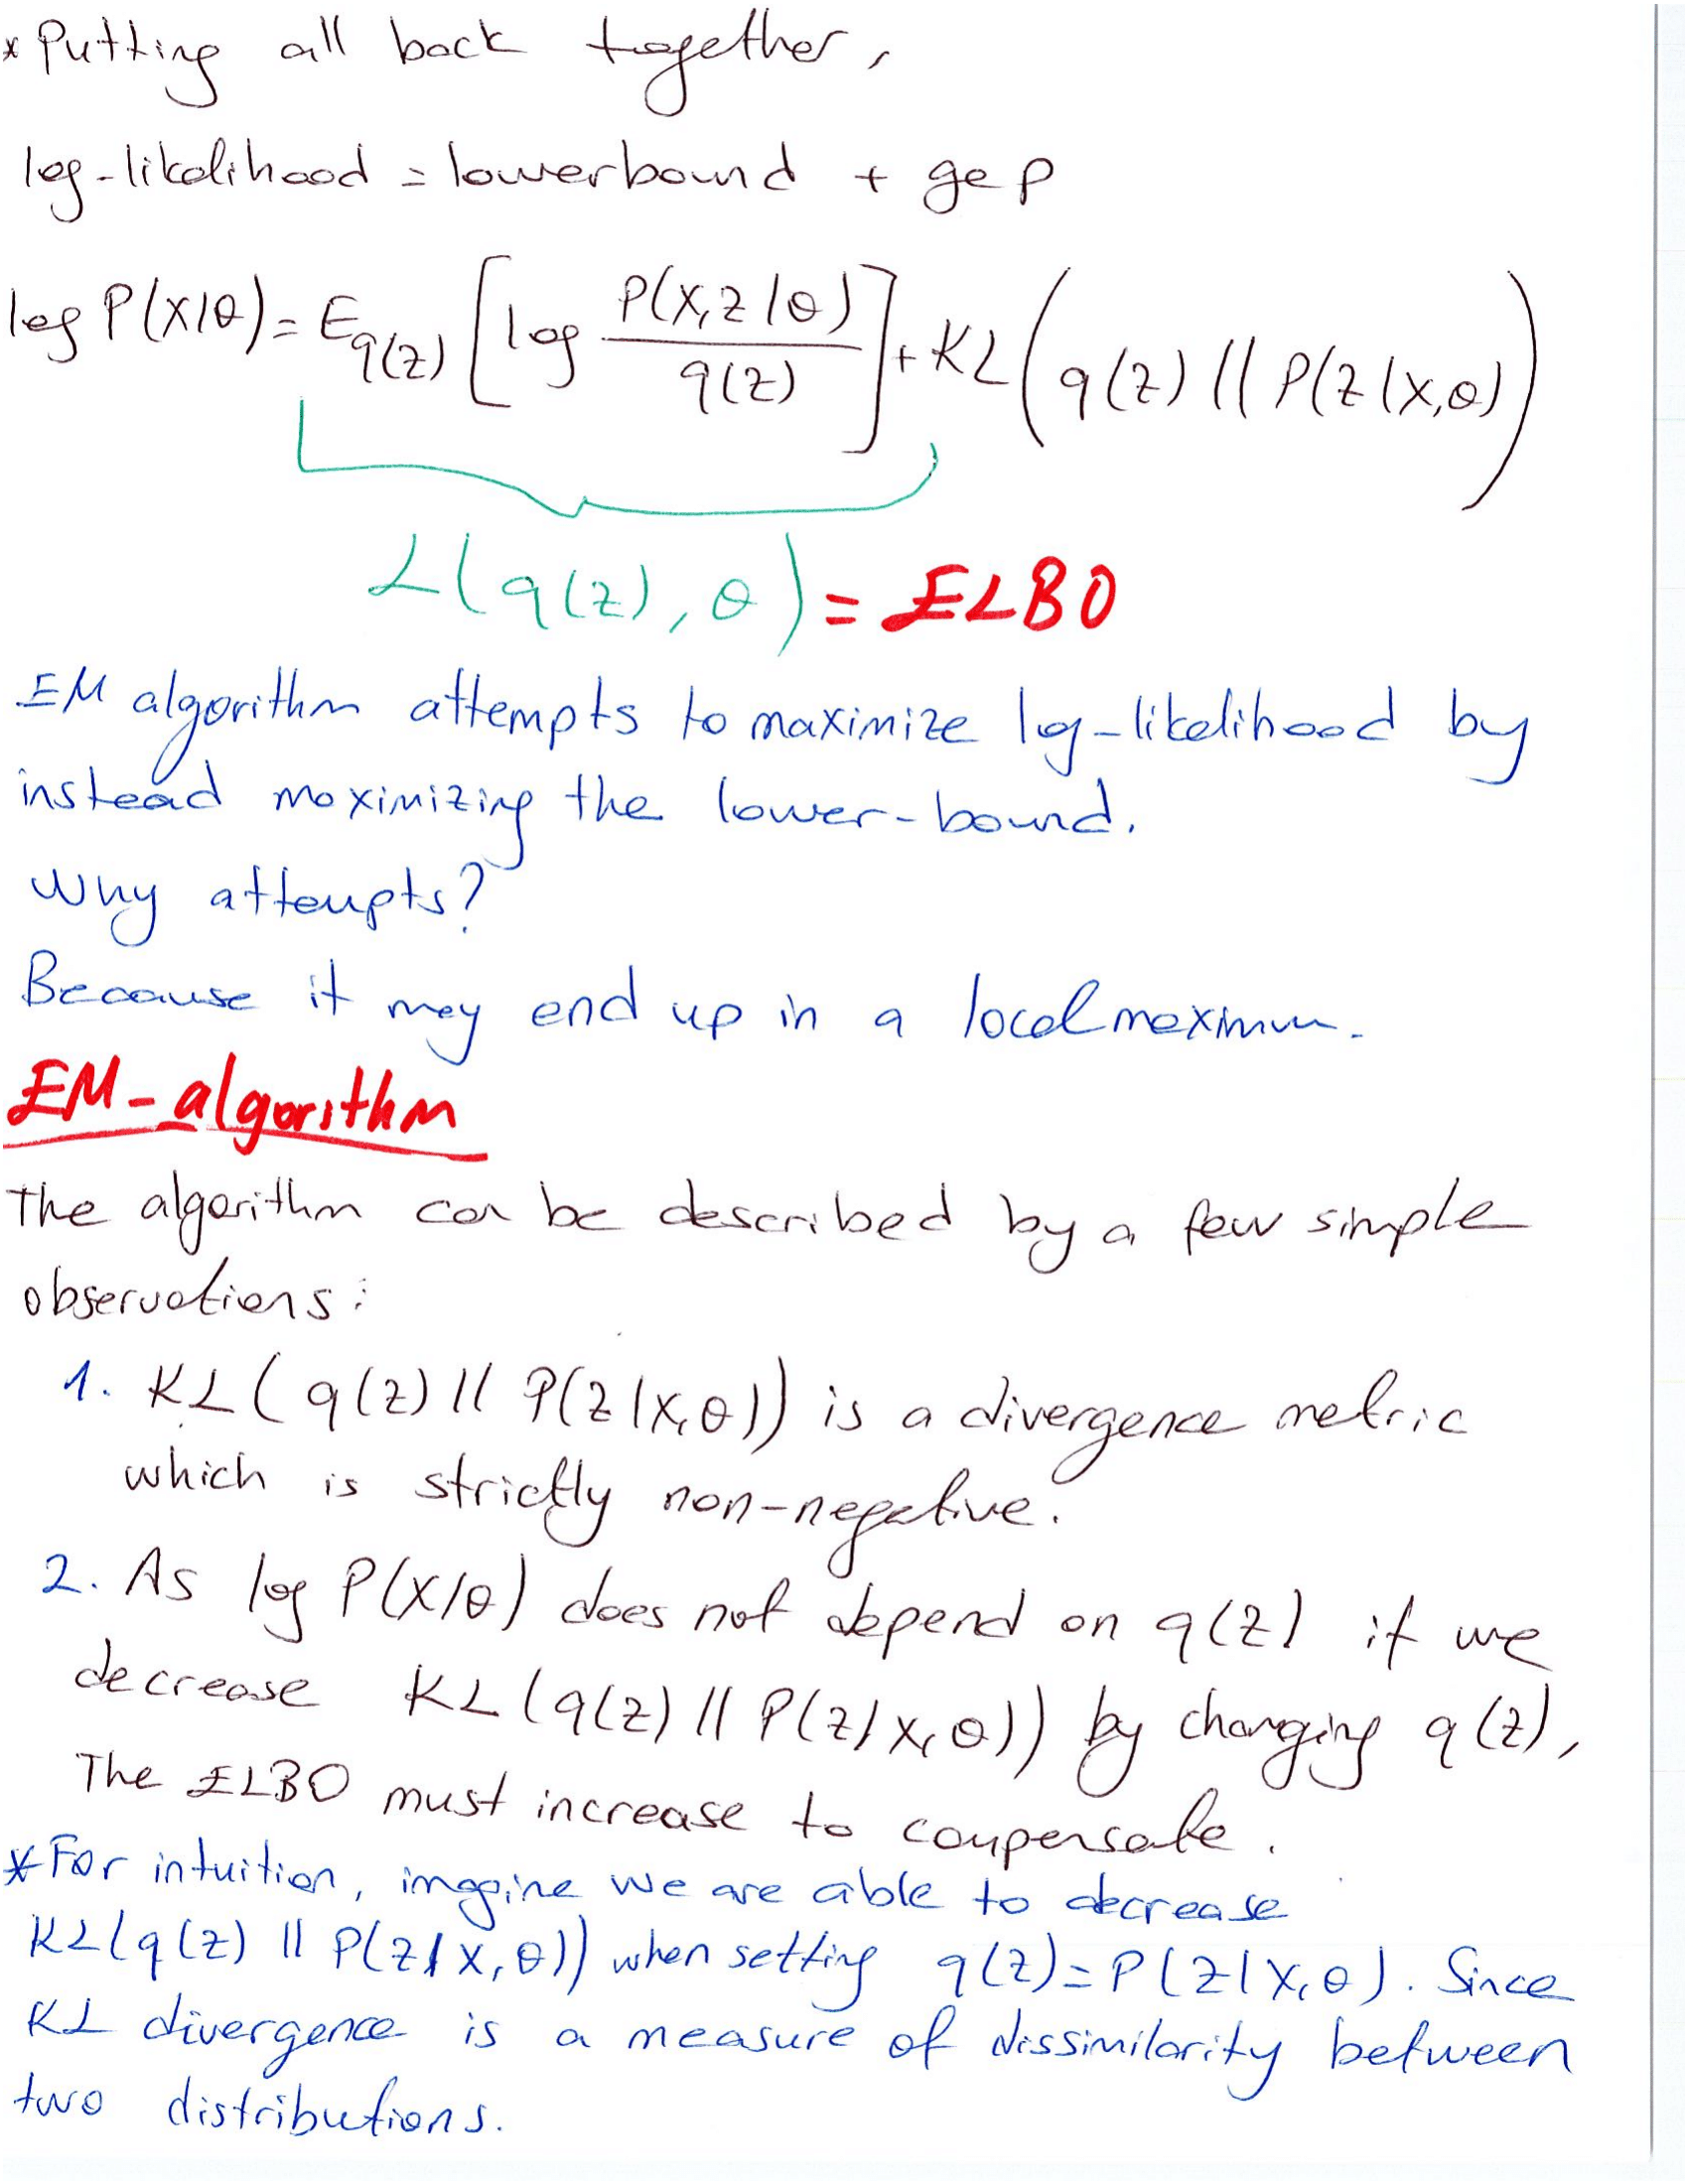 * Putting all back together,
log-likelihood = lowerbound + gap
log P(X|θ) = E_q(z) [log P(X,z|θ) / q(z)] + KL(q(z) || P(z|X,θ))
L(q(z), θ) = ELBO
EM algorithm attempts to maximize log-likelihood by
instead maximizing the lower-bound.
Why attempts?
Because it may end up in a local maximum.
EM-algorithm
The algorithm can be described by a few simple
observations:
1. KL(q(z) || P(z|X,θ)) is a divergence metric
which is strictly non-negative.
2. As log P(X|θ) does not depend on q(z) if we
decrease KL(q(z) || P(z|X,θ)) by changing q(z),
The ELBO must increase to compensate.
* For intuition, imagine we are able to decrease
KL(q(z) || P(z|X,θ)) when setting q(z)=P(z|X,θ). Since
KL divergence is a measure of dissimilarity between
two distributions.